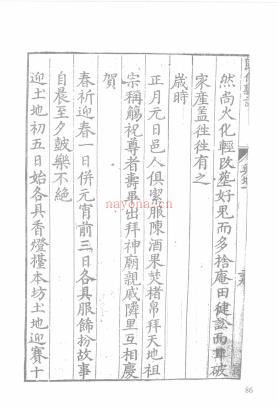 然尚火化輕改塟好鬼而多捨庵田健訟而
家産盖徃徃有之
歲時
正月元日邑人俱潔服陳酒果焚楮帛拜天地祖
宗稱觴祝尊者壽畢出拜神廟親戚隣里互相慶
賀
春祈迎春一日併元宵前三日各具服飾扮故事
自晨至夕皷樂不絶
迎土地初五日始各具香燈擡本坊土地迎賽十
nayona.cn
86